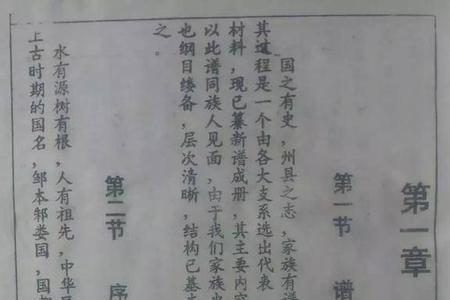 第一章
第一节 谱
国之有史，州县之志，家族有谱
其过程是一个由各大支系选出代表
材料，现已纂新谱成册，其主要内容
以此谱同族人见面，由于我们家族史
也纲目缕备，层次清晰，结构已基本
之。
第二节 序
水有源树有根，人有祖先，中华民
上古时期的国名，邹本邾娄国，国